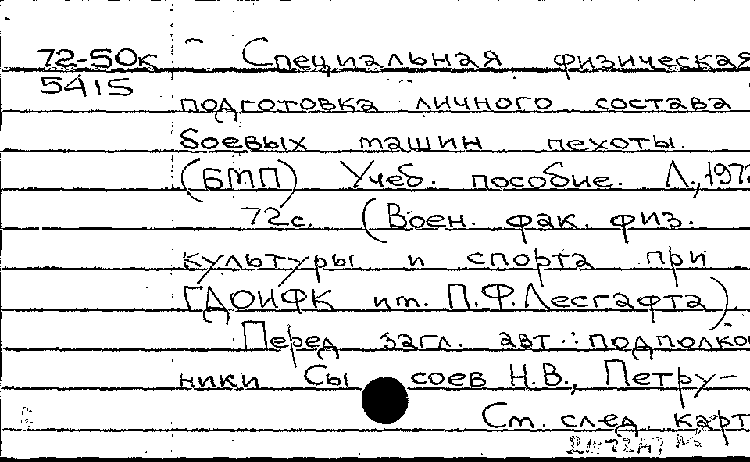 72-50к Специальная физическая
5415
подготовка личного состава
боевых машин пехоты.
(БМП) Учеб. пособие. Л., 1972
72с. (Воен. фак. физ.
культуры и спорта при
ГДОИФК им. П.Ф.Лесгафта).
Перед загл. авт.: подполков
ники Сысоев Н.В., Петру-
См. след. карт